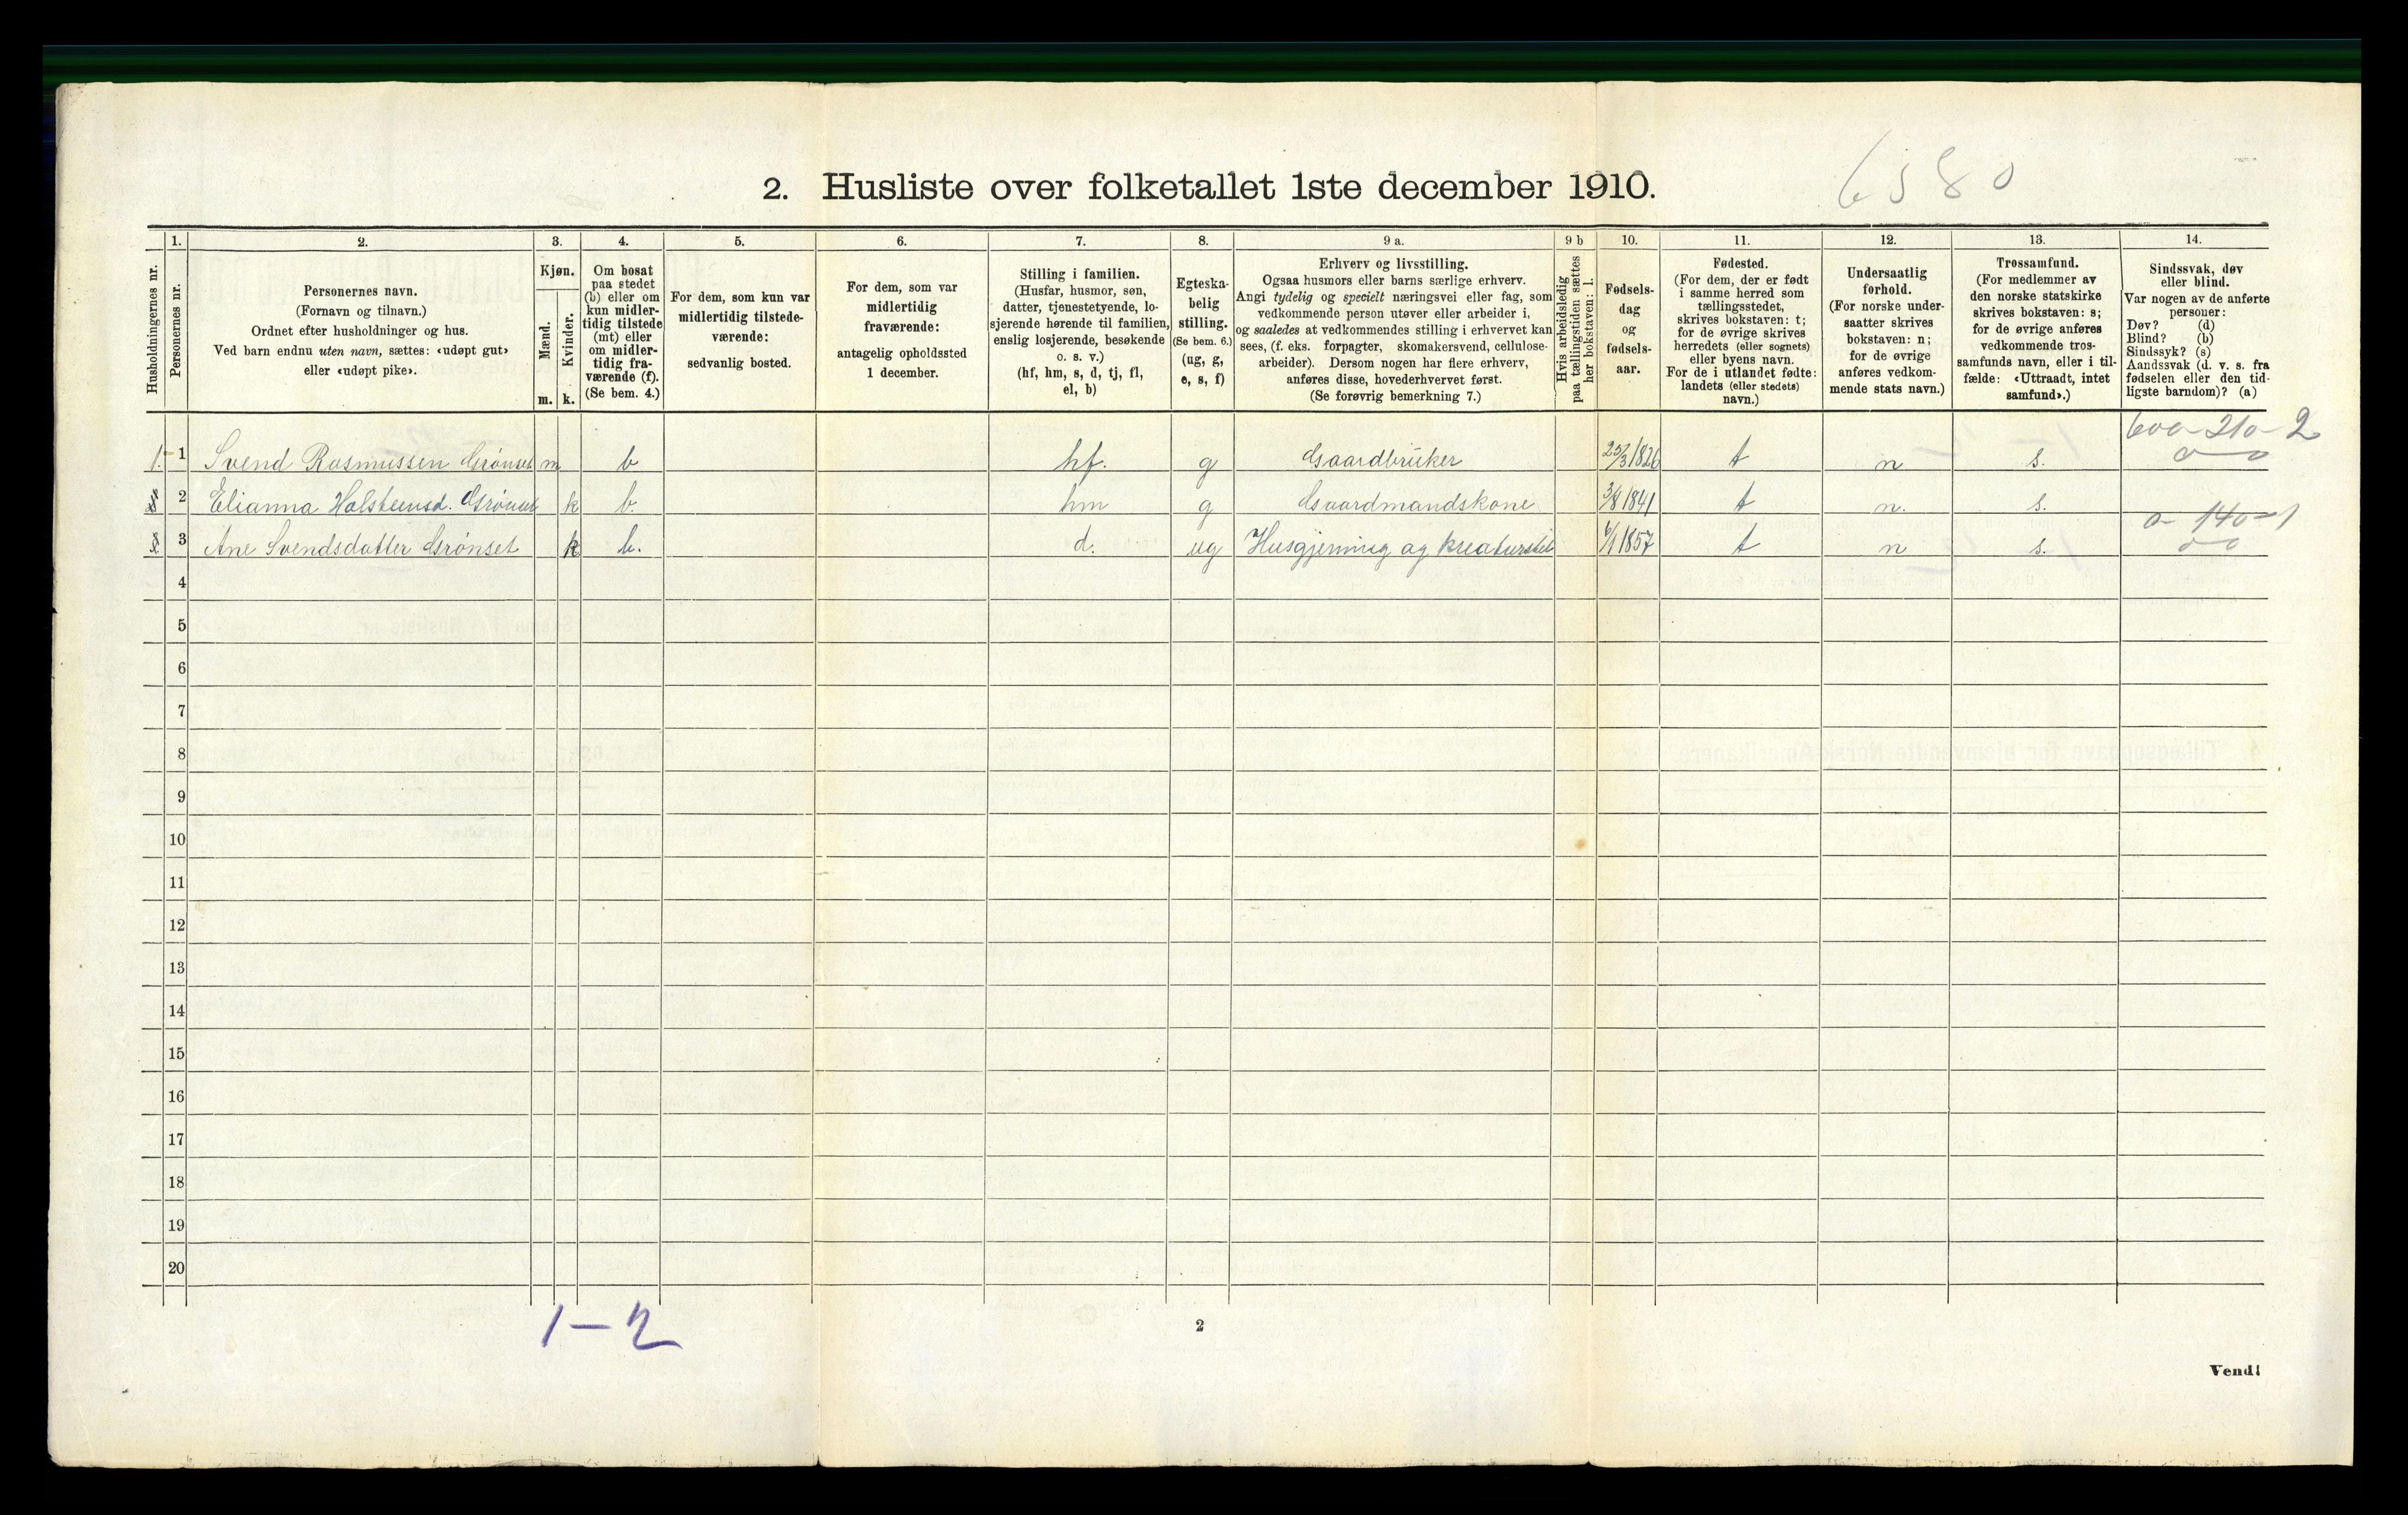 6580
2. Husliste over folketallet 1ste december 1910.
Husholdningernes nr.
1. Personernes nr.
2. Personernes navn.
(Fornavn og tilnavn.)
Ordnet efter husholdninger og hus.
Ved barn endnu uten navn, sættes: «udøpt gut»
eller «udøpt pike».
3. Kjøn.
Mænd. Kvinder.
m. k.
4. Om bosat
paa stedet
(b) eller om
kun midler-
tidig tilstede
(mt) eller
om midler-
tidig fra-
værende (f).
(Se bem. 4.)
5. For dem, som kun var
midlertidig tilstede-
værende:
sedvanlig bosted.
6. For dem, som var
midlertidig
fraværende:
antagelig opholdssted
1 december.
7. Stilling i familien.
(Husfar, husmor, søn,
datter, tjenestetyende, lo-
sjerende hørende til familien,
enslig losjerende, besøkende
o. s. v.)
(hf, hm, s, d, tj, fl,
el, b)
8. Egteska-
belig
stilling.
(Se bem. 6.)
(ug, g,
e, s, f)
9 a. Erhverv og livsstilling.
Ogsaa husmors eller barns særlige erhverv.
Angi tydelig og specielt næringsvei eller fag, som
vedkommende person utøver eller arbeider i,
og saaledes at vedkommendes stilling i erhvervet kan
sees, (f. eks. forpagter, skomakersvend, cellulose-
arbeider). Dersom nogen har flere erhverv,
anføres disse, hovederhvervet først.
(Se forøvrig bemerkning 7.)
9 b Hvis arbeidsledig
paa tællingstiden sættes
her bokstaven: l.
10. Fødsels-
dag
og
fødsels-
aar.
11. Fødested.
(For dem, der er født
i samme herred som
tællingsstedet,
skrives bokstaven: t;
for de øvrige skrives
herredets (eller sognets)
eller byens navn.
For de i utlandet fødte:
landets (eller stedets)
navn.)
12. Undersaatlig
forhold.
(For norske under-
saatter skrives
bokstaven: n;
for de øvrige
anføres vedkom-
mende stats navn.)
13. Trossamfund.
(For medlemmer av
den norske statskirke
skrives bokstaven: s;
for de øvrige anføres
vedkommende tros-
samfunds navn, eller i til-
fælde: «Uttraadt, intet
samfund».)
14. Sindssvak, døv
eller blind.
Var nogen av de anførte
personer:
Døv? (d)
Blind? (b)
Sindssyk? (s)
Aandssvak (d. v. s. fra
fødselen eller den tid-
ligste barndom)? (a)
600-210-2
0-0
1. 1 Svend Rasmussen Grønset m b hf. g Gaardbruker 25/3 1826 t n s.
2 Elianna Holsteensd. Grønset k b. hm g Gaardmandskone 3/8 1841 t n. s.
0-140-1
0-0
3 Ane Svendsdatter Grønset k b. d. ug Husgjerning og kreaturstel 6/1 1857 t n s.
4
5
6
7
8
9
10
11
12
13
14
15
16
17
18
19
20
1-2
2
Vend!